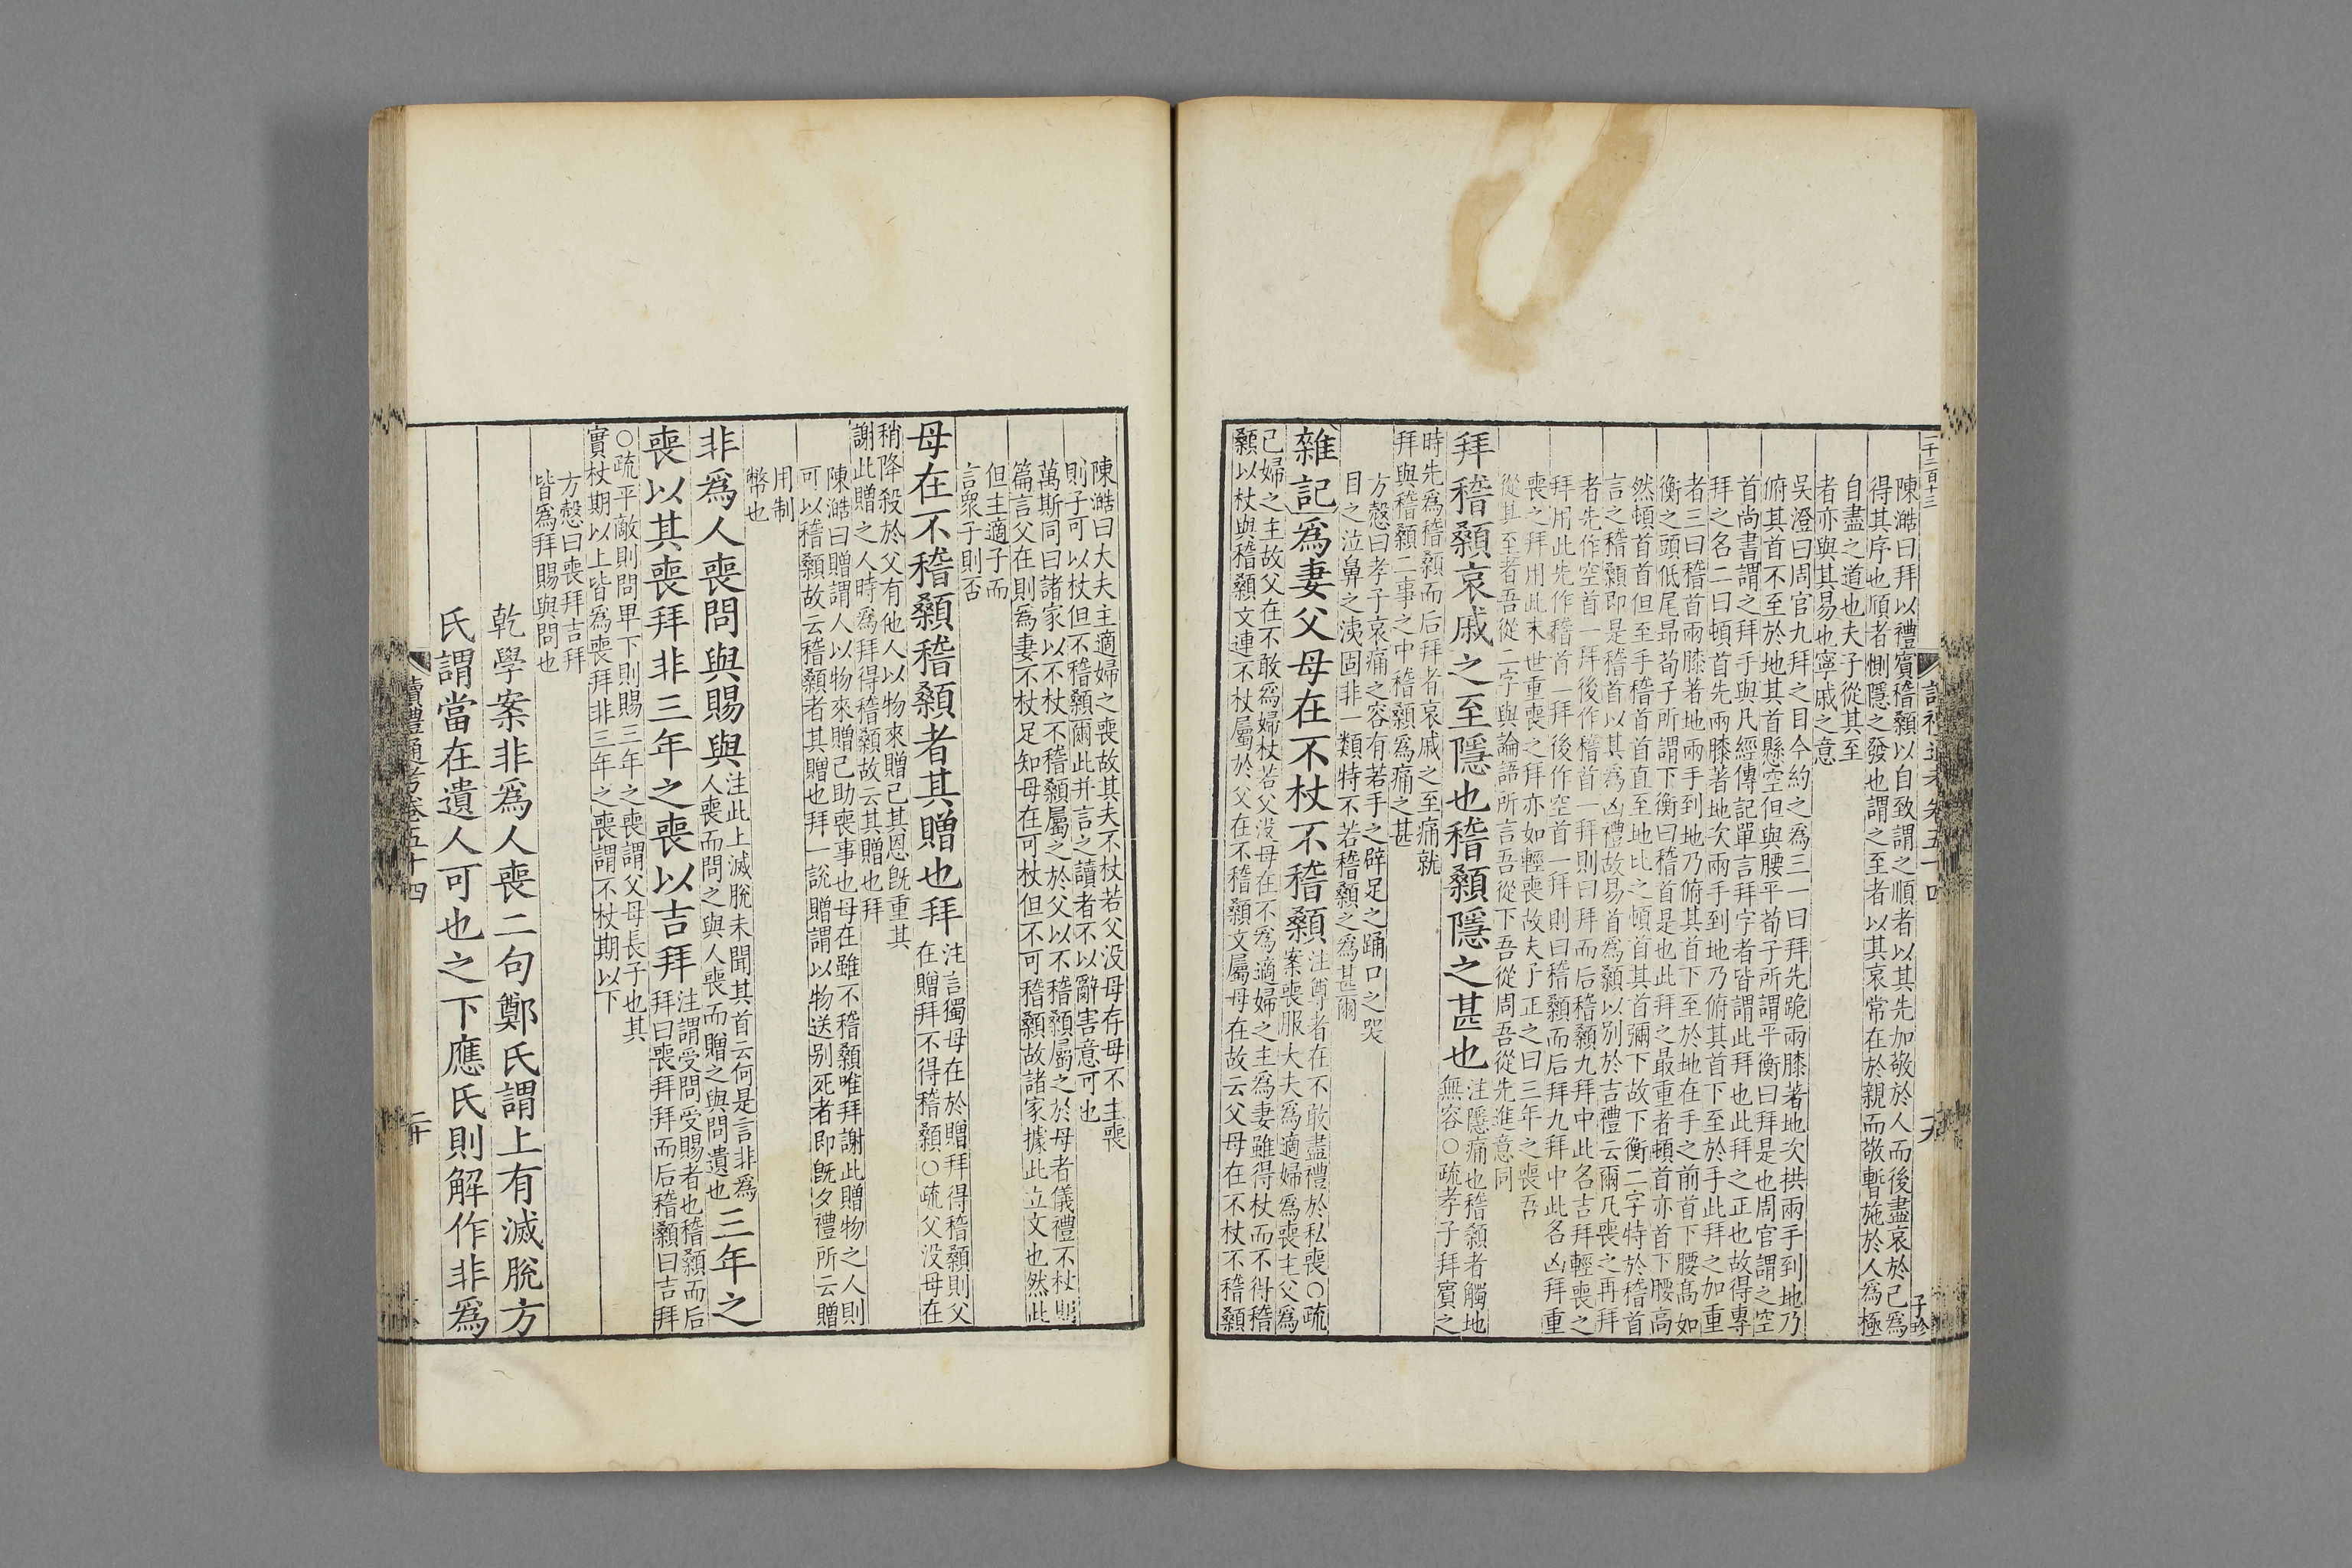 二千二百十三
讀禮通考卷五十四
子珍
陳澔曰拜以禮賓稽顙以自致謂之順者以其先加敬於人而後盡哀於己為
得其序也頎者惻隱之發也謂之至者以其哀常在於親而敬暫施於人爲極
自盡之道也夫子從其至
者亦與其易也寧戚之意
吳澄曰周官九拜之目今約之為三一曰拜先跪兩膝著地次拱兩手到地乃
俯其首不至於地其首懸空但與腰平荀子所謂平衡曰拜是也周官謂之空
首尚書謂之拜手與凡經傳記單言拜字者皆謂此拜也此拜之正也故得專
拜之名二曰頓首先兩膝著地次兩手到地乃俯其首下至於手此拜之加重
者三曰稽首兩膝著地兩手到地乃俯其首下至於地在手之前首下腰高如
衡之頭低尾昂荀子所謂下衡曰稽首是也此拜之最重者頓首亦首下腰高
然頓首首但至手稽首首直至地比之頓首其首彌下故下衡二字特於稽首
言之稽顙即是稽首以其爲凶禮故易首為顙以别於吉禮云爾凡喪之再拜
者先作空首一拜後作稽首一拜則曰拜而后稽顙九拜中此名吉拜輕喪之
拜用此先作稽首一拜後作空首一拜則曰稽顙而后拜九拜中此名凶拜重
喪之拜用此末世重喪之拜亦如輕喪故夫子正之曰三年之喪吾
從其至者吾從二字與論語所言吾從下吾從周吾從先進意同
拜稽顙哀戚之至隱也稽顙隱之甚也
注隱痛也稽顙者觸地
無容○疏孝子拜賓之
時先爲稽顙而后拜者哀戚之至痛就
拜與稽顙二事之中稽顙爲痛之甚
方慤曰孝子哀痛之容有若手之辟足之踊口之哭
目之泣鼻之洟固非一類特不若稽顙之爲甚爾
雜記爲妻父母在不杖不稽顙
注尊者在不敢盡禮於私喪○疏
案喪服大夫爲適婦爲喪主父爲
己婦之主故父在不敢爲婦杖若父没母在不爲適婦之主爲妻雖得杖而不得稽
顙以杖與稽顙文連不杖屬於父在不稽顙文屬母在故云父母在不杖不稽顙
陳澔曰大夫主適婦之喪故其夫不杖若父没母存母不主喪
則子可以杖但不稽顙爾此并言之讀者不以辭害意可也
萬斯同曰諸家以不杖不稽顙屬之於父以不稽顙屬之於母者儀禮不杖期
篇言父在則爲妻不杖足知母在可杖但不可稽顙故諸家據此立文也然此
但主適子而
言衆子則否
母在不稽顙稽顙者其贈也拜
注言獨母在於贈拜得稽顙則父
在贈拜不得稽顙○疏父没母在
稍降殺於父有他人以物來贈己其恩旣重其
謝此贈之人時爲拜得稽顙故云其贈也拜
陳澔曰贈謂人以物來贈己助喪事也母在雖不稽顙唯拜謝此贈物之人則
可以稽顙故云稽顙者其贈也拜一說贈謂以物送别死者即旣夕禮所云贈
用制
幣也
非爲人喪問與賜與
注此上滅脫未聞其首云何是言非爲
人喪而問之與人喪而贈之與問遺也
三年之
喪以其喪拜非三年之喪以吉拜
注謂受問受賜者也稽顙而后
拜曰喪拜拜而后稽顙曰吉拜
○疏平敵則問卑下則賜三年之喪謂父母長子也其
實杖期以上皆爲喪拜非三年之喪謂不杖期以下
方慤曰喪拜吉拜
皆爲拜賜與問也
乾學案非爲人喪二句鄭氏謂上有滅脫方
氏謂當在遺人可也之下應氏則解作非爲
讀禮通考卷五十四
二十